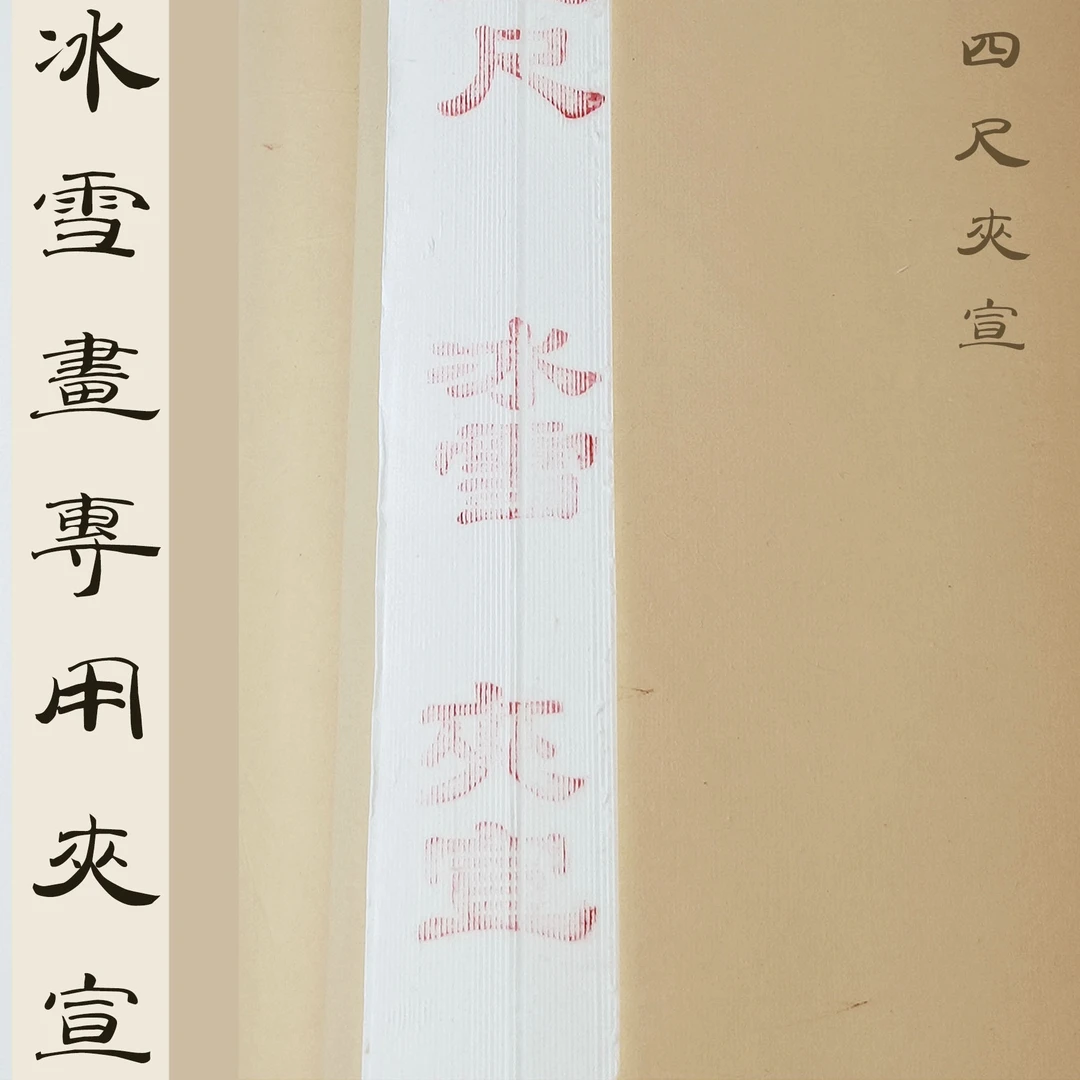 冰雪畫專用夾宣
尺 冰雪 夾宣
四尺夾宣